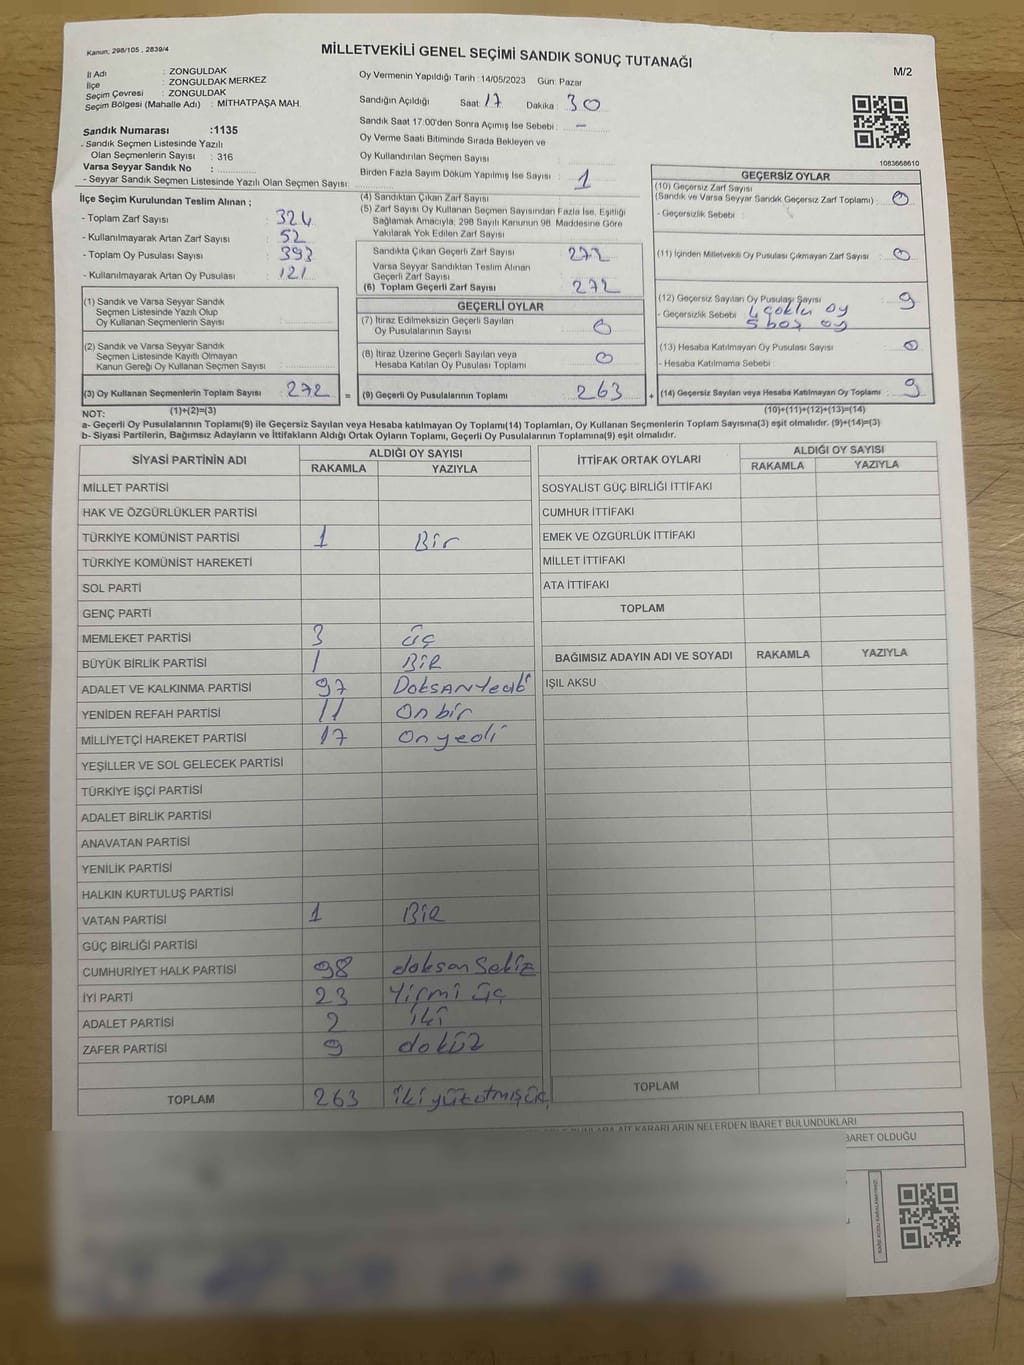 Kanun; 298/105 , 2839/4
MİLLETVEKİLİ GENEL SEÇİMİ SANDIK SONUÇ TUTANAĞI
M/2
İl Adı : ZONGULDAK
İlçe : ZONGULDAK MERKEZ
Seçim Çevresi : ZONGULDAK
Seçim Bölgesi (Mahalle Adı) : MİTHATPAŞA MAH.
Sandık Numarası :1135
- Sandık Seçmen Listesinde Yazılı
Olan Seçmenlerin Sayısı : 316
Varsa Seyyar Sandık No :
- Seyyar Sandık Seçmen Listesinde Yazılı Olan Seçmen Sayısı:
Oy Vermenin Yapıldığı Tarih :14/05/2023 Gün: Pazar
Sandığın Açıldığı Saat: 17 Dakika : 30
Sandık Saat 17:00'den Sonra Açımış İse Sebebi : -
Oy Verme Saati Bitiminde Sırada Bekleyen ve
Oy Kullandırılan Seçmen Sayısı
Birden Fazla Sayım Döküm Yapılmış İse Sayısı : 1
1083668610
İlçe Seçim Kurulundan Teslim Alınan ;
- Toplam Zarf Sayısı : 324
- Kullanılmayarak Artan Zarf Sayısı : 52
- Toplam Oy Pusulası Sayısı : 393
- Kullanılmayarak Artan Oy Pusulası : 121
(1) Sandık ve Varsa Seyyar Sandık
Seçmen Listesinde Yazılı Olup
Oy Kullanan Seçmenlerin Sayısı :
(2) Sandık ve Varsa Seyyar Sandık
Seçmen Listesinde Kayıtlı Olmayan
Kanun Gereği Oy Kullanan Seçmen Sayısı :
(3) Oy Kullanan Seçmenlerin Toplam Sayısı : 272 =
(1)+(2)=(3)
(4) Sandıktan Çıkan Zarf Sayısı
(5) Zarf Sayısı Oy Kullanan Seçmen Sayısından Fazla İse, Eşitliği
Sağlamak Amacıyla, 298 Sayılı Kanunun 98. Maddesine Göre
Yakılarak Yok Edilen Zarf Sayısı
Sandıkta Çıkan Geçerli Zarf Sayısı : 272
Varsa Seyyar Sandıktan Teslim Alınan
Geçerli Zarf Sayısı
(6) Toplam Geçerli Zarf Sayısı : 272
GEÇERLİ OYLAR
(7) İtiraz Edilmeksizin Geçerli Sayılan
Oy Pusulalarının Sayısı : 0
(8) İtiraz Üzerine Geçerli Sayılan veya
Hesaba Katılan Oy Pusulası Toplamı : 0
(9) Geçerli Oy Pusulalarının Toplamı : 263 +
GEÇERSİZ OYLAR
(10) Geçersiz Zarf Sayısı
(Sandık ve Varsa Seyyar Sandık Geçersiz Zarf Toplamı) : 0
- Geçersizlik Sebebi :
(11) İçinden Milletvekili Oy Pusulası Çıkmayan Zarf Sayısı : 0
(12) Geçersiz Sayılan Oy Pusulası Sayısı : 9
- Geçersizlik Sebebi : 4 çoklu oy
5 boş oy
(13) Hesaba Katılmayan Oy Pusulası Sayısı : 0
- Hesaba Katılmama Sebebi :
(14) Geçersiz Sayılan veya Hesaba Katılmayan Oy Toplamı : 9
(10)+(11)+(12)+(13)=(14)
NOT:
a- Geçerli Oy Pusulalarının Toplamı(9) ile Geçersiz Sayılan veya Hesaba katılmayan Oy Toplamı(14) Toplamları, Oy Kullanan Seçmenlerin Toplam Sayısına(3) eşit olmalıdır. (9)+(14)=(3)
b- Siyasi Partilerin, Bağımsız Adayların ve İttifakların Aldığı Ortak Oyların Toplamı, Geçerli Oy Pusulalarının Toplamına(9) eşit olmalıdır.
SİYASİ PARTİNİN ADI ALDIĞI OY SAYISI
RAKAMLA YAZIYLA
MİLLET PARTİSİ
HAK VE ÖZGÜRLÜKLER PARTİSİ
TÜRKİYE KOMÜNİST PARTİSİ 1 Bir
TÜRKİYE KOMÜNİST HAREKETİ
SOL PARTİ
GENÇ PARTİ
MEMLEKET PARTİSİ 3 üç
BÜYÜK BİRLİK PARTİSİ 1 BİR
ADALET VE KALKINMA PARTİSİ 97 DoksanYedi
YENİDEN REFAH PARTİSİ 11 On bir
MİLLİYETÇİ HAREKET PARTİSİ 17 On yedi
YEŞİLLER VE SOL GELECEK PARTİSİ
TÜRKİYE İŞÇİ PARTİSİ
ADALET BİRLİK PARTİSİ
ANAVATAN PARTİSİ
YENİLİK PARTİSİ
HALKIN KURTULUŞ PARTİSİ
VATAN PARTİSİ 1 BİR
GÜÇ BİRLİĞİ PARTİSİ
CUMHURİYET HALK PARTİSİ 98 doksan Sekiz
İYİ PARTİ 23 Yirmi üç
ADALET PARTİSİ 2 iki
ZAFER PARTİSİ 9 doküz
TOPLAM 263 iki yüz atmış üç
İTTİFAK ORTAK OYLARI ALDIĞI OY SAYISI
RAKAMLA YAZIYLA
SOSYALİST GÜÇ BİRLİĞİ İTTİFAKI
CUMHUR İTTİFAKI
EMEK VE ÖZGÜRLÜK İTTİFAKI
MİLLET İTTİFAKI
ATA İTTİFAKI
TOPLAM
BAĞIMSIZ ADAYIN ADI VE SOYADI RAKAMLA YAZIYLA
IŞIL AKSU
TOPLAM
KARARLARIN NELERDEN İBARET BULUNDUKLARI
BARET OLDUĞU